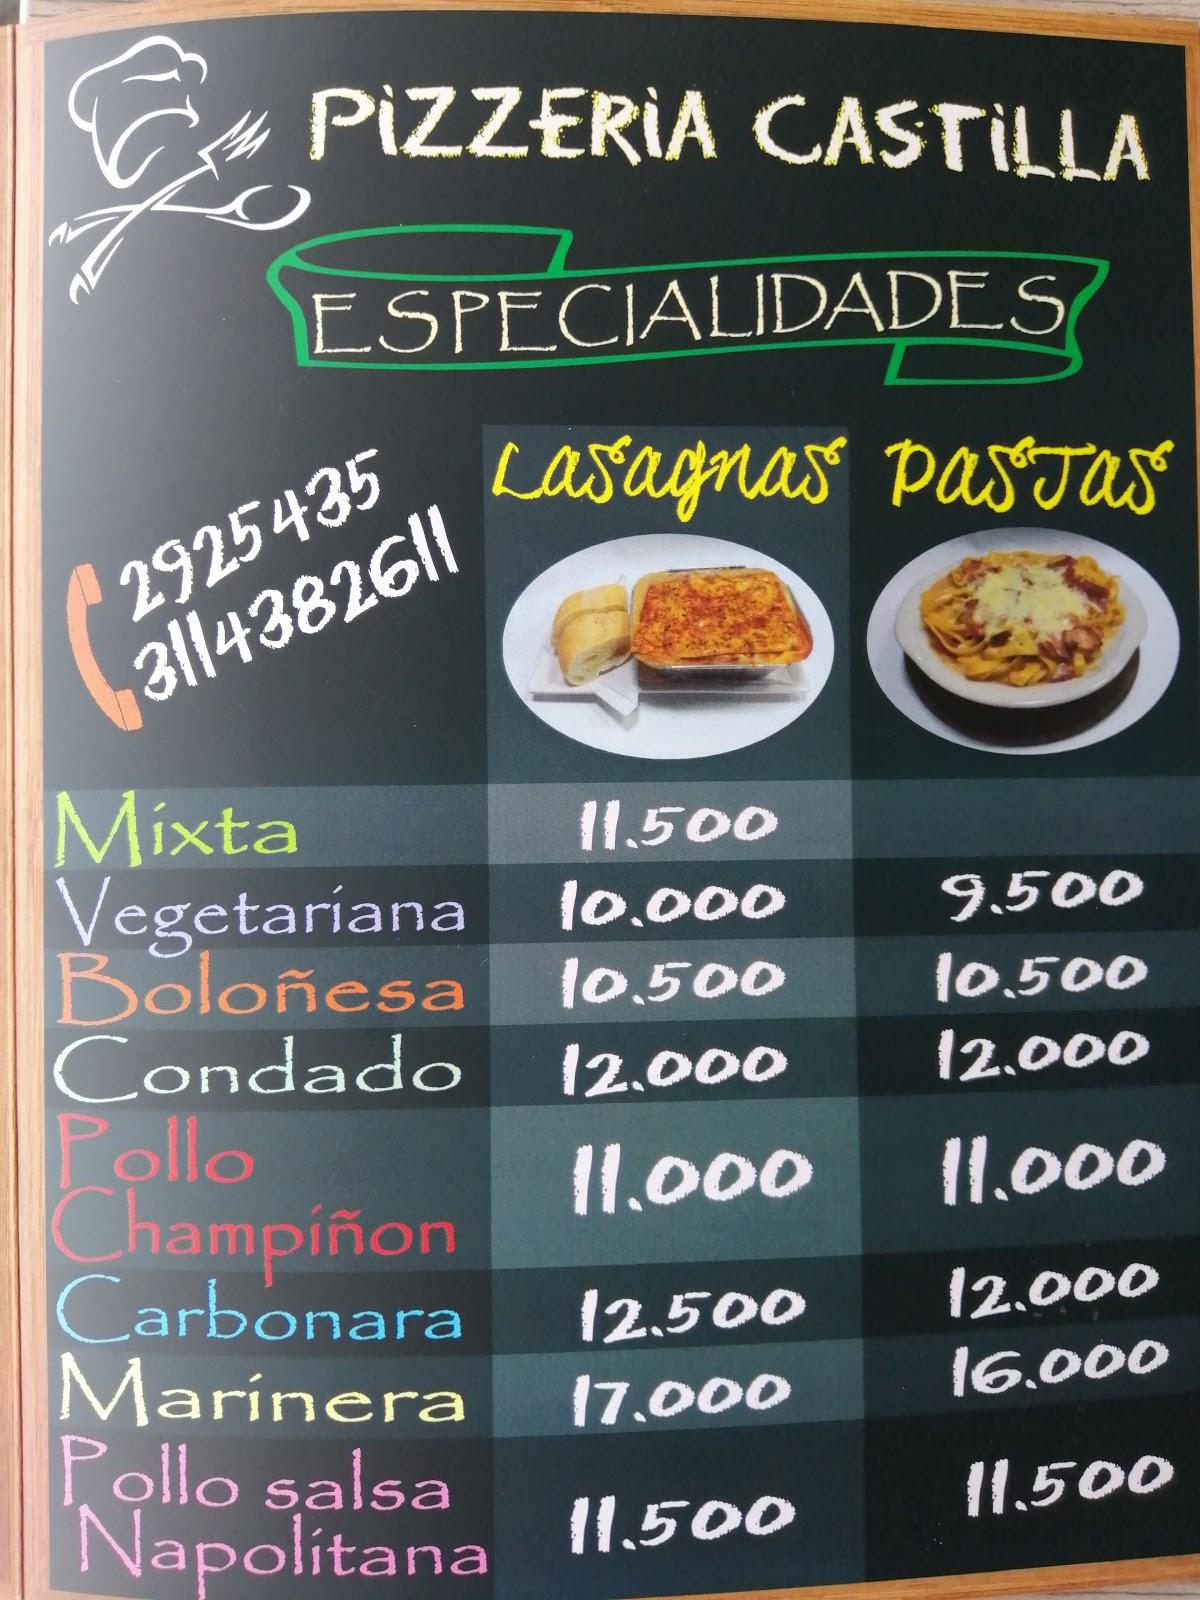 PIZZERIA CASTILLA
ESPECIALIDADES
2925435
3114382611
Lasagnas Pastas
Mixta 11.500
Vegetariana 10.000 9.500
Boloñesa 10.500 10.500
Condado 12.000 12.000
Pollo
Champiñon 11.000 11.000
Carbonara 12.500 12.000
Marinera 17.000 16.000
Pollo salsa
Napolitana 11.500 11.500